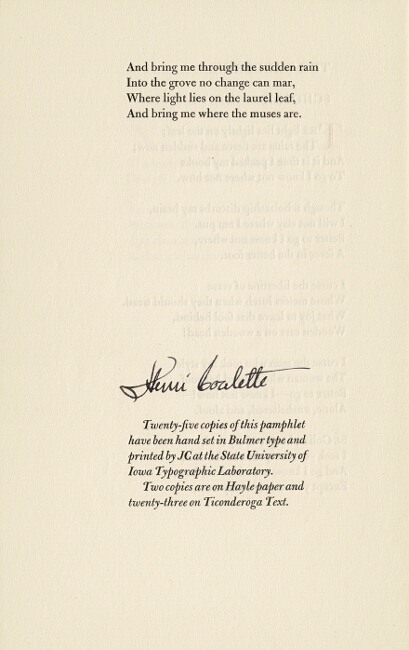 And bring me through the sudden rain
Into the grove no change can mar,
Where light lies on the laurel leaf,
And bring me where the muses are.
Henri Coulette
Twenty-five copies of this pamphlet
have been hand set in Bulmer type and
printed by JC at the State University of
Iowa Typographic Laboratory.
Two copies are on Hayle paper and
twenty-three on Ticonderoga Text.